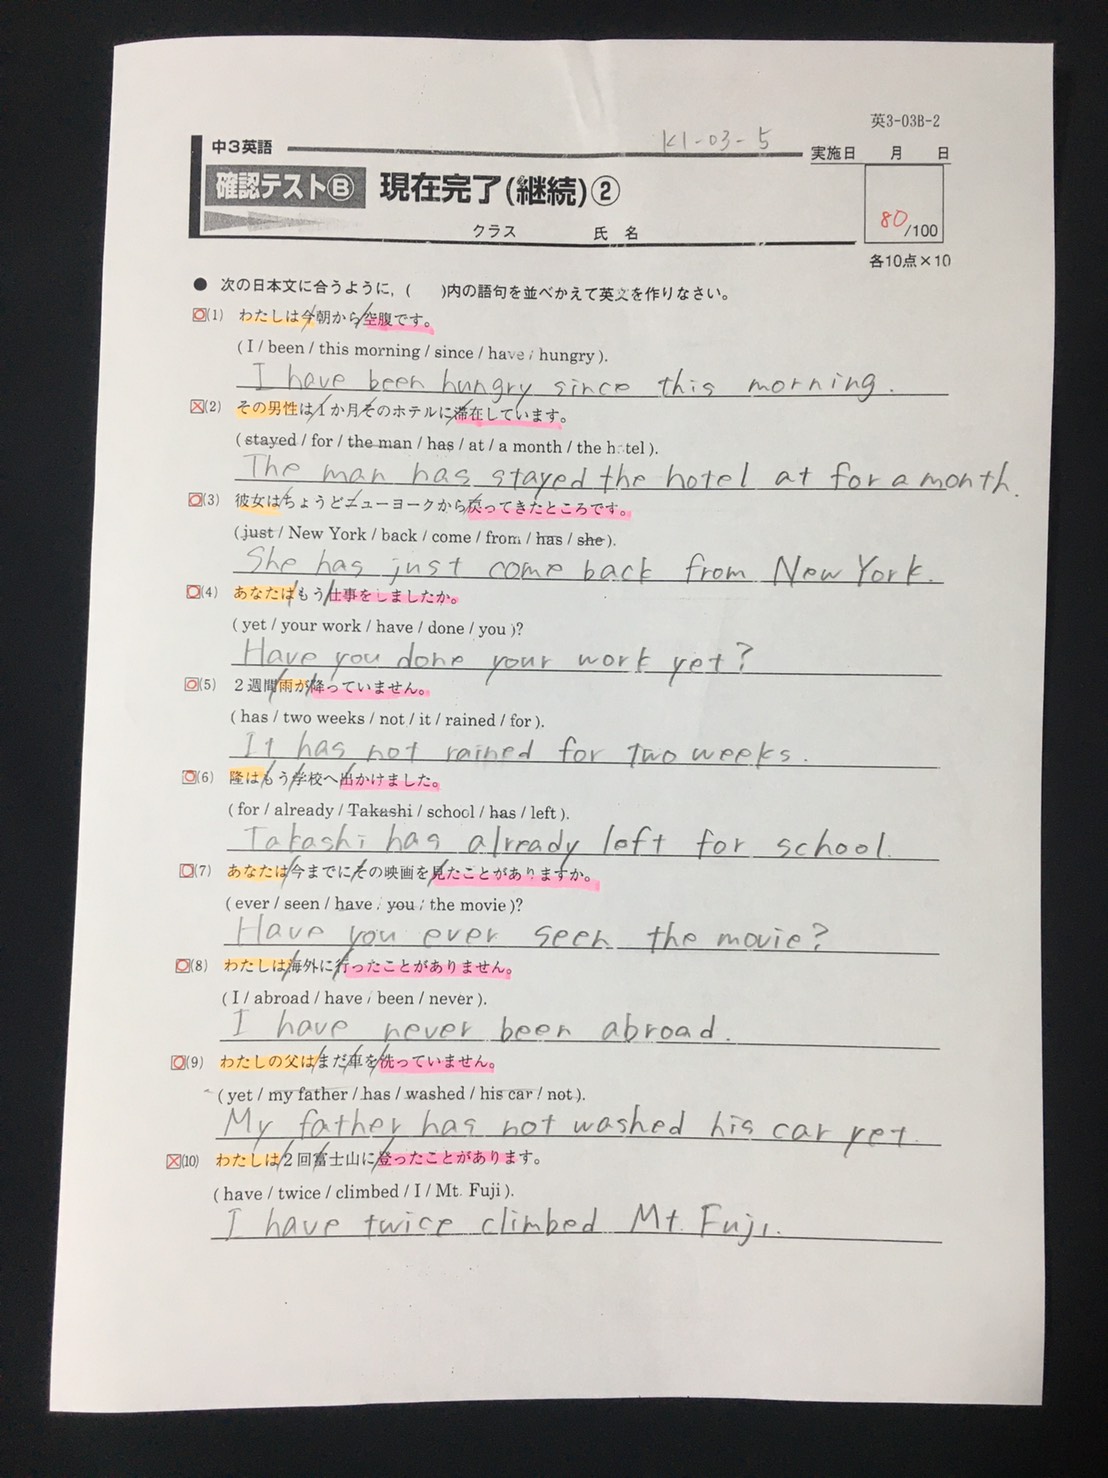 英3-03B-2
中3英語
K1-03-5
実施日 月 日
確認テストⒷ 現在完了(継続)②
80/100
クラス 氏 名
各10点×10
● 次の日本文に合うように, ( )内の語句を並べかえて英文を作りなさい。
(1) わたしは今朝から空腹です。
( I / been / this morning / since / have / hungry ).
I have been hungry since this morning.
(2) その男性は1か月そのホテルに滞在しています。
( stayed / for / the man / has / at / a month / the hotel ).
The man has stayed the hotel at for a month.
(3) 彼女はちょうどニューヨークから戻ってきたところです。
( just / New York / back / come / from / has / she ).
She has just come back from New York.
(4) あなたはもう仕事をしましたか。
( yet / your work / have / done / you )?
Have you done your work yet?
(5) 2週間雨が降っていません。
( has / two weeks / not / it / rained / for ).
It has not rained for two weeks.
(6) 隆はもう学校へ出かけました。
( for / already / Takashi / school / has / left ).
Takashi has already left for school.
(7) あなたは今までにその映画を見たことがありますか。
( ever / seen / have / you / the movie )?
Have you ever seen the movie?
(8) わたしは海外に行ったことがありません。
( I / abroad / have / been / never ).
I have never been abroad.
(9) わたしの父はまだ車を洗っていません。
( yet / my father / has / washed / his car / not ).
My father has not washed his car yet.
(10) わたしは2回富士山に登ったことがあります。
( have / twice / climbed / I / Mt. Fuji ).
I have twice climbed Mt. Fuji.